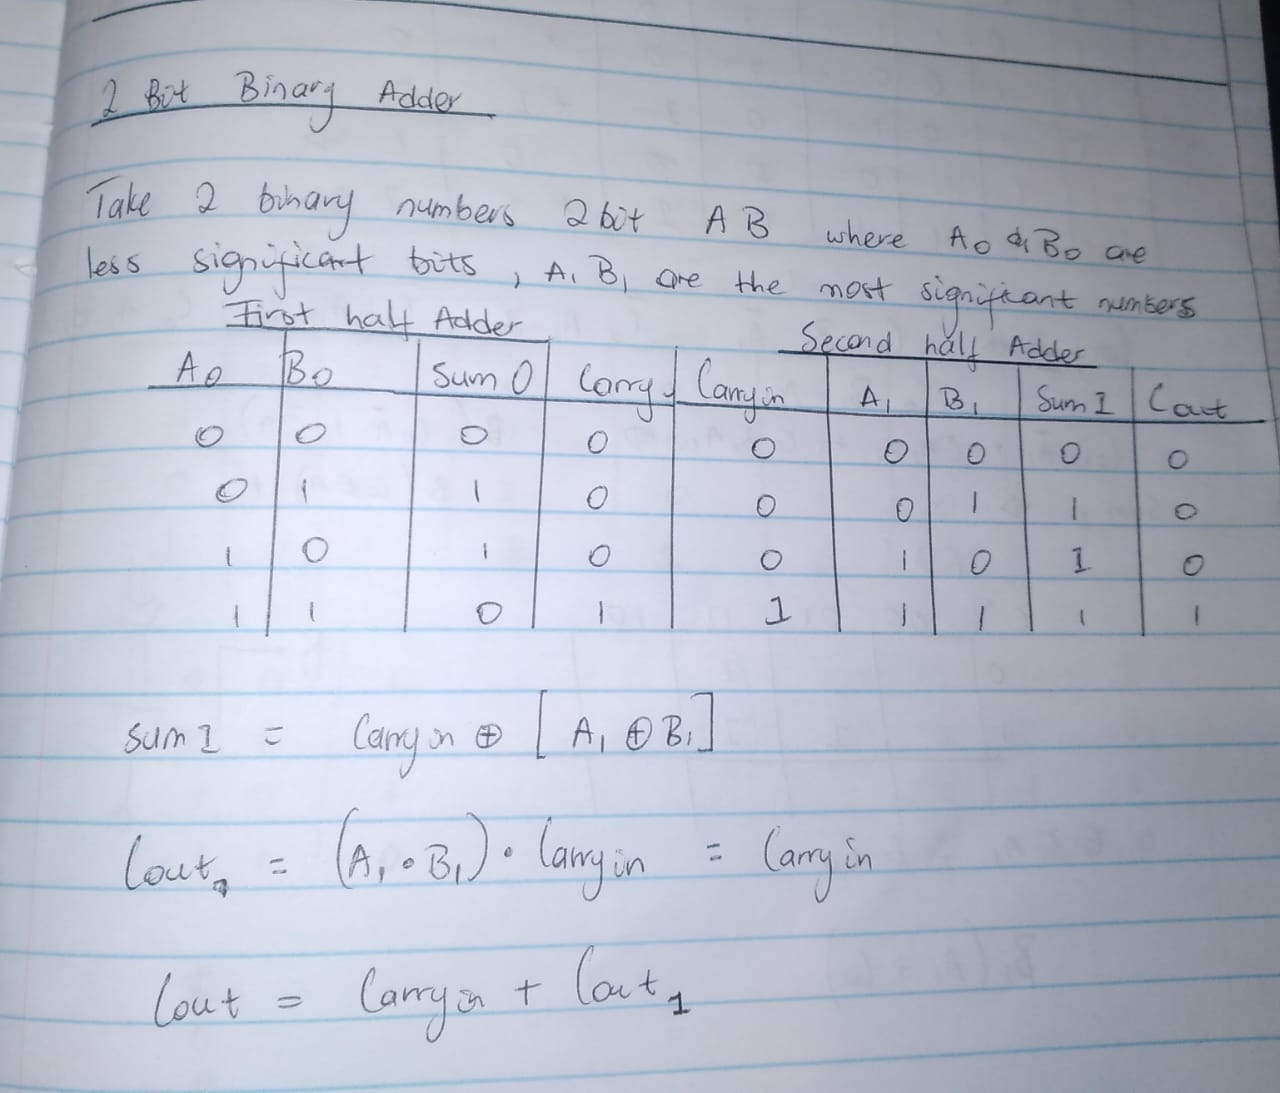 2 Bit Binary Adder
Take 2 binary numbers 2 bit A B where A0 & B0 are
less significant bits , A1 B1 are the most significant numbers
First half Adder Second half Adder
A0 B0 Sum 0 Carry Carry in A1 B1 Sum 1 Cout
0 0 0 0 0 0 0 0 0
0 1 1 0 0 0 1 1 0
1 0 1 0 0 1 0 1 0
1 1 0 1 1 1 1 1 1
Sum 1 = Carry in ⊕ [ A1 ⊕ B1 ]
Cout = (A1 • B1) • Carry in = Carry in
Cout = Carry in + Cout1